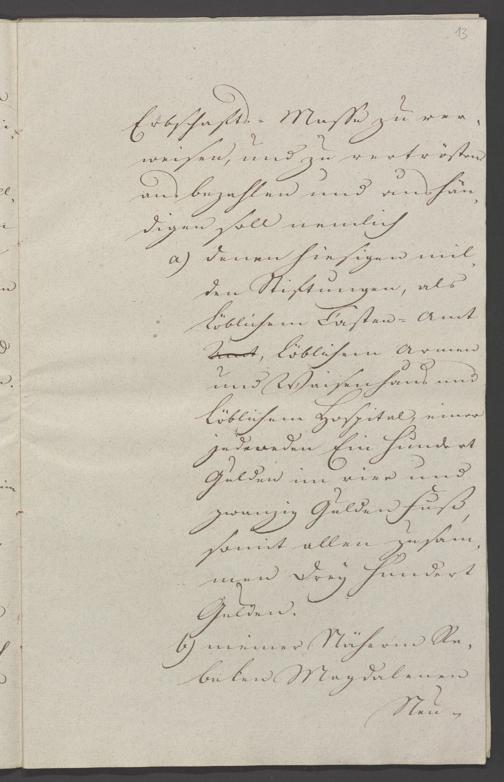 13
Erbschafts-Masse zu ver-
weisen, und zu vertrösten
ausbezahlen und aushän-
digen soll nemlich
a) denen hiesigen mil-
den Stiftungen, als
löblichem Casten-Amt
Amt, löblichem Armen
und Waisenhaus und
löblichem Hospital, einer
jedweden Ein hundert
Gulden im vier und
zwanzig Gulden Fuß,
somit allen zusam-
men Drey hundert
Gulden.
b) meiner Näherin Re-
beken Magdalenen
Neu-